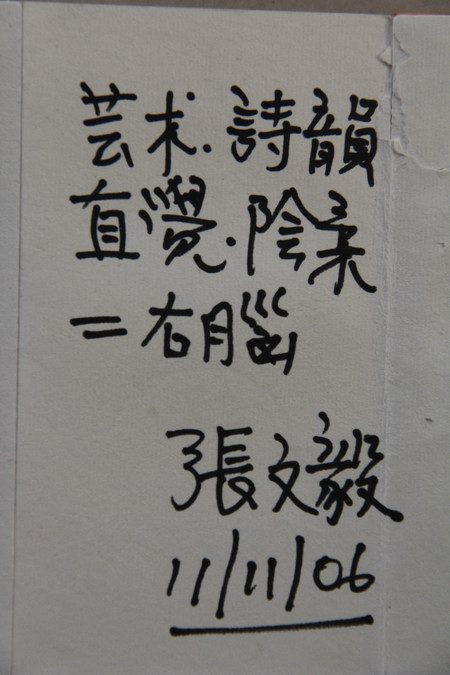 芸术.詩韻
直覺.陰柔
=右腦
張文毅
11/11/06